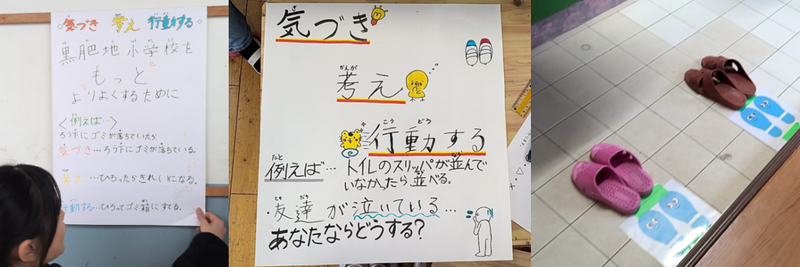 気づき 考え 行動する
黒肥地小学校を
もっと
よりよくするために
<例えば…>
ろう下にゴミが落ちていたら
気づき…ろう下にゴミが落ちている。
考え…ひろったらきれいになる。
行動する…ひろってゴミ箱にすてる。
気づき
かんが
考え
こう どう
行動する
たと
例えば… トイレのスリッパが並んで
いなかったら、並べる。
友達が泣いている…
あなたならどうする?